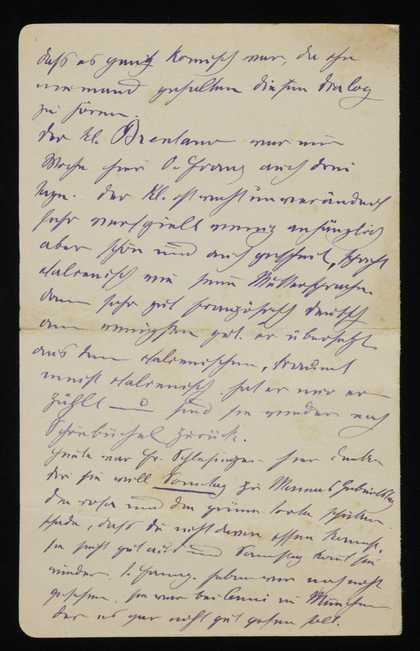 dass es ganz komisch war, da ihn
niemand gehalten diesen Dialog
zu hören.
Der kl. Brentano war eine
Woche hier O. Franz auch drei
Tage. Der kl. ist recht unverändert
sehr verspielt wenig anhänglich
aber schön und auch gescheit, spricht
italienisch wie seine Muttersprache
dann sehr gut französisch deutsch
am wenigsten gut. er übersetzt
aus dem italienischen, träumt
meist italienisch hat er mir er-
zählt — u sind sie wieder nach
Schönbüchel zurück.
Heute war Fr. Schlesinger hier
die sie will Sonntag zu Mamas Geburtstag
die rosa und die grüne Torte schicken.
schade, dass du nicht davon essen kannst.
sie sieht gut aus und Samstag kommt sie
wieder. haben wir noch nicht
gesehen. sie war bei in München
der es gar nicht gut gehen soll.